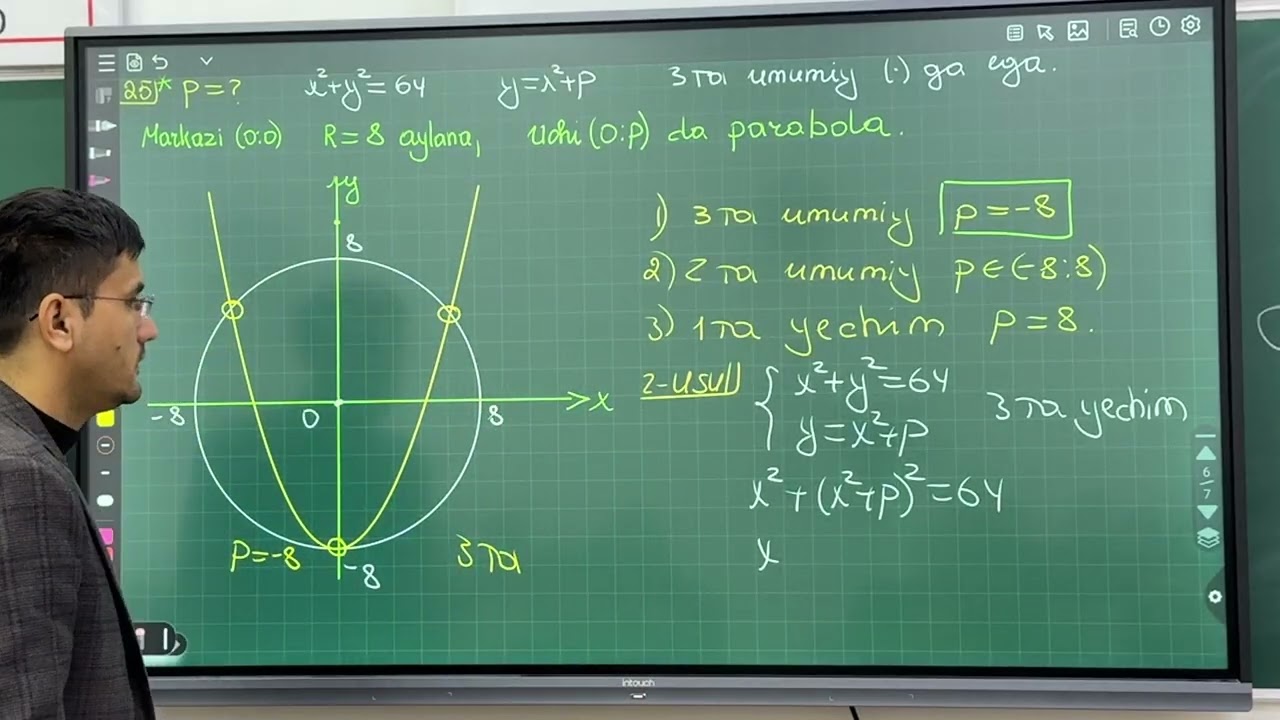 25)* P=? x²+y²=64 y=x²+p 3 та umumiy (·) ga ega.
Markazi (0:0) R=8 aylana, Uchi (0:p) da parabola.
y
8
-8 0 8 x
P=-8 -8 3 та
1) 3 та umumiy p=-8
2) 2 та umumiy p∈(-8:8)
3) 1 та yechim p=8.
2-usul) { x²+y²=64
y=x²+p 3 та yechim
x²+(x²+p)²=64
x
6/7
intouch